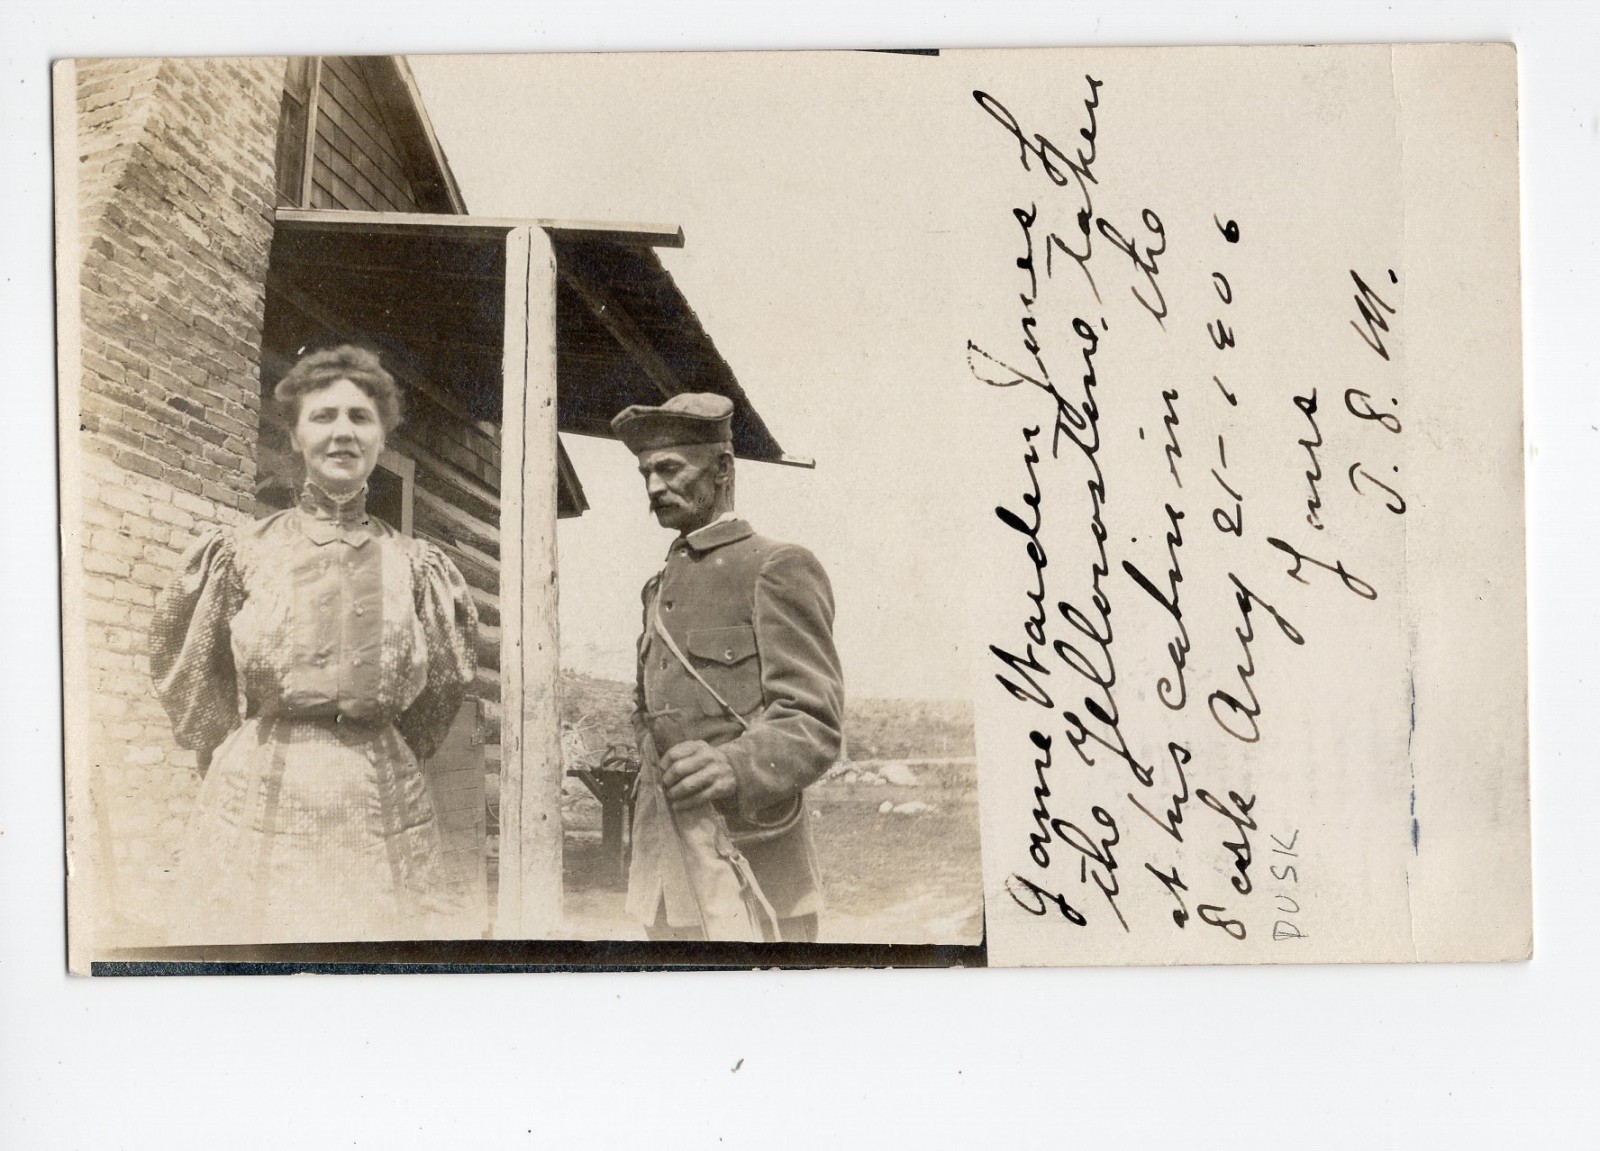 Game Warden Jones of
the Yellowstone. taken
at his cabin in the
Park Aug 21-1906
Yours
J. E. M.
DUSK